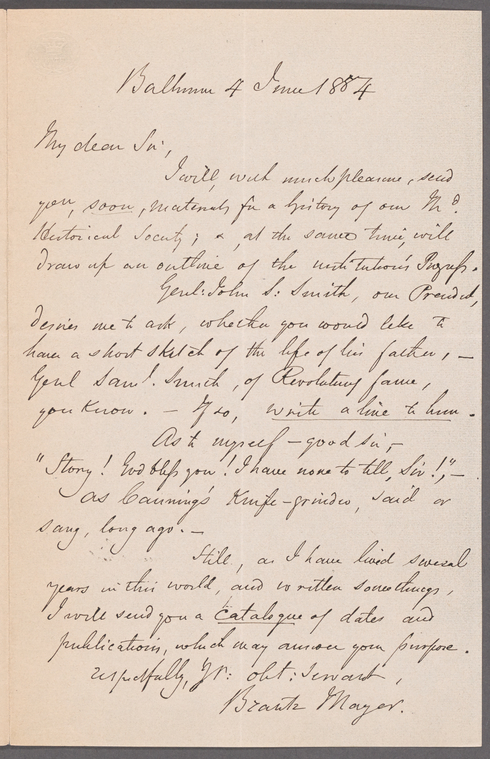 Baltimore 4 June 1854
My dear Sir,
I will, with much pleasure, send
you, soon, materials for a history of our Md.
Historical Society; &, at the same time, will
draw up an outline of the institution's Progress.
Genl: John S: Smith, our President,
desires me to ask, whether you would like to
have a short sketch of the life of his father, —
Genl Saml. Smith, of Revolutony fame,
you know. — If so, write a line to him.
As to myself — good sir, —
"Story! God bless you! I have none to tell, Sir!", —
as Canning's Knife-grinder, said or
sang, long ago. —
Still, as I have lived several
years in this world, and written somethings,
I will send you a catalogue of dates and
publications, which may answer your purpose.
respectfully, Yr: obt: Servant,
Brantz Mayer.